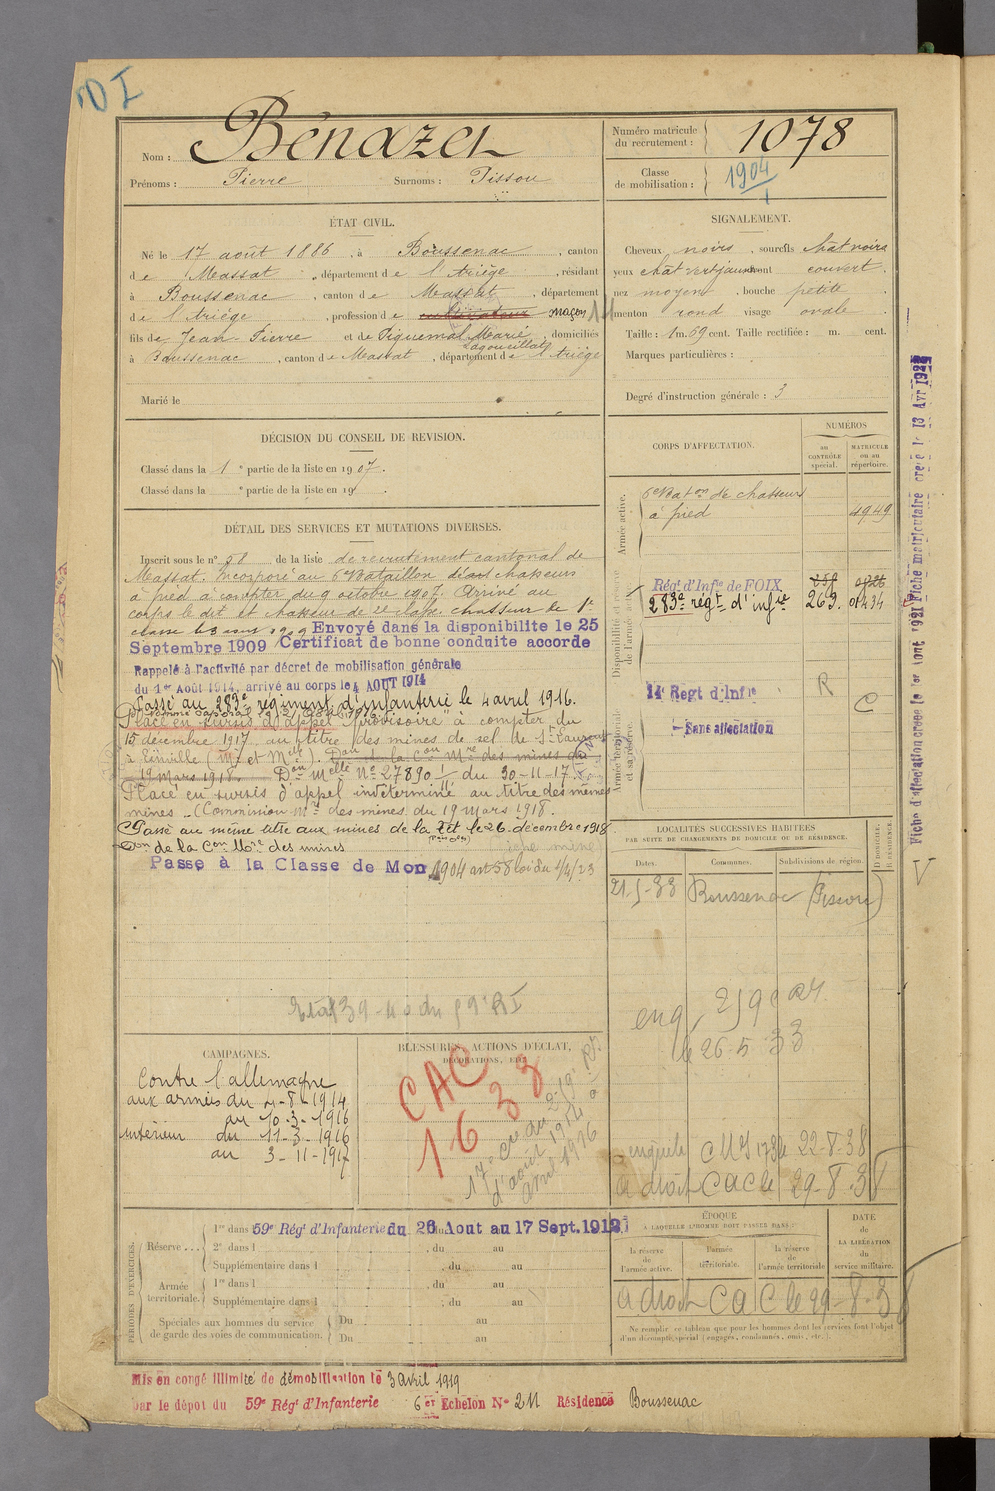 DI
Nom : Bénazet
Prénoms : Pierre Surnoms : Pissou
Numéro matricule du recrutement : 1078
Classe de mobilisation : 1904
ÉTAT CIVIL.
Né le 17 août 1886, à Boussenac, canton
de Massat, département de l'Ariège, résidant
à Boussenac, canton de Massat, département
de l'Ariège, profession de cultivateur maçon 14
fils de Jean-Pierre et de Piquemal Marie, domiciliés
Lagouillat
à Boussenac, canton de Massat, département de l'Ariège
Marié le
SIGNALEMENT.
Cheveux noirs, sourcils chât noirs
yeux chât vert jaune, front couvert,
nez moyen, bouche petite,
menton rond visage ovale.
Taille : 1m. 69 cent. Taille rectifiée : m. cent.
Marques particulières :
Degré d'instruction générale : 3
DÉCISION DU CONSEIL DE REVISION.
Classé dans la 1e partie de la liste en 1907.
Classé dans la e partie de la liste en 19 .
DÉTAIL DES SERVICES ET MUTATIONS DIVERSES.
Inscrit sous le n° 58 de la liste de recrutement cantonal de
Massat. Incorporé au 6e Bataillon de chasseurs
à pied à compter du 9 octobre 1907. Arrivé au
corps le dit et chasseur de 2e classe. chasseur de 1e
classe le 3 août 1909 Envoyé dans la disponibilite le 25
Septembre 1909 Certificat de bonne conduite accorde
Rappelé à l'activité par décret de mobilisation générale
du 1er Août 1914, arrivé au corps le 4 AOUT 1914
Passé au 283e régiment d'infanterie le 4 avril 1916.
Placé en sursis d'appel "provisoire" à compter du
15 décembre 1917 au titre des mines de sel de St Laurent
à Einville (Mthe et Mlle). Don de la Con Mre des mines du
19 mars 1918. Don Melle No 27890 1/ du 30-11-17
Placé en sursis d'appel indéterminé au titre des mêmes
mines - (Commission Mre des mines du 19 mars 1918.
Passé au même titre aux mines de la Têt le 26 décembre 1918
Don de la Con Mre des mines
Passé à la Classe de Mon 1904 art 58 loi du 1/4/23
Etat 39-40 du 59e RI
CORPS D'AFFECTATION.
NUMÉROS
AU CONTRÔLE spécial.
MATRICULE ou au répertoire.
Armée active.
6e Baton de chasseurs
à pied 4949
Disponibilité et réserve de l'armée active.
Régt d'Infie de FOIX
283e régt d'infre 263. 01434
Armée territoriale et sa réserve.
14e Regt d'Infie
R
C
Sans affectation
Fiche matriculaire créée le 13 Avr
V
LOCALITÉS SUCCESSIVES HABITÉES
PAR SUITE DE CHANGEMENTS DE DOMICILE OU DE RÉSIDENCE.
D DOMICILE. R RÉSIDENCE.
Dates. Communes. Subdivisions de région.
21-5-33 Boussenac (Pissou)
enq
le 26-5-33
enquête CMS 173 le 22-8-38
a droit CAC le 29-8-38
CAMPAGNES.
Contre l'allemagne
aux armées du 4-8-1914
au 10-3-1916
intérieur du 11-3-1916
au 3-11-1917
BLESSURES, ACTIONS D'ÉCLAT,
DÉCORATIONS, ETC.
CAC
1638
17e Cie du 259e RI
d'août 1914 à
avril 1916
PÉRIODES D'EXERCICES.
Réserve... 1re dans l 59e Régt d'Infanterie du 26 Aout au 17 Sept. 1912
2e dans l , du au
Supplémentaire dans l , du au
Armée territoriale. 1re dans l , du au
Supplémentaire dans l , du au
Spéciales aux hommes du service de garde des voies de communication. Du au
Du au
ÉPOQUE
À LAQUELLE L'HOMME DOIT PASSER DANS :
la réserve de l'armée active.
l'armée territoriale.
la réserve de l'armée territoriale
DATE de LA LIBÉRATION du service militaire.
a droit CAC le 29-8-38
Ne remplir ce tableau que pour les hommes dont les services font l'objet
d'un décompte spécial (engagés, condamnés, omis, etc.).
Mis en congé illimité de démobilisation le 3 avril 1919
par le dépôt du 59e Régt d'Infanterie 6er Echelon No 211 Résidence Boussenac